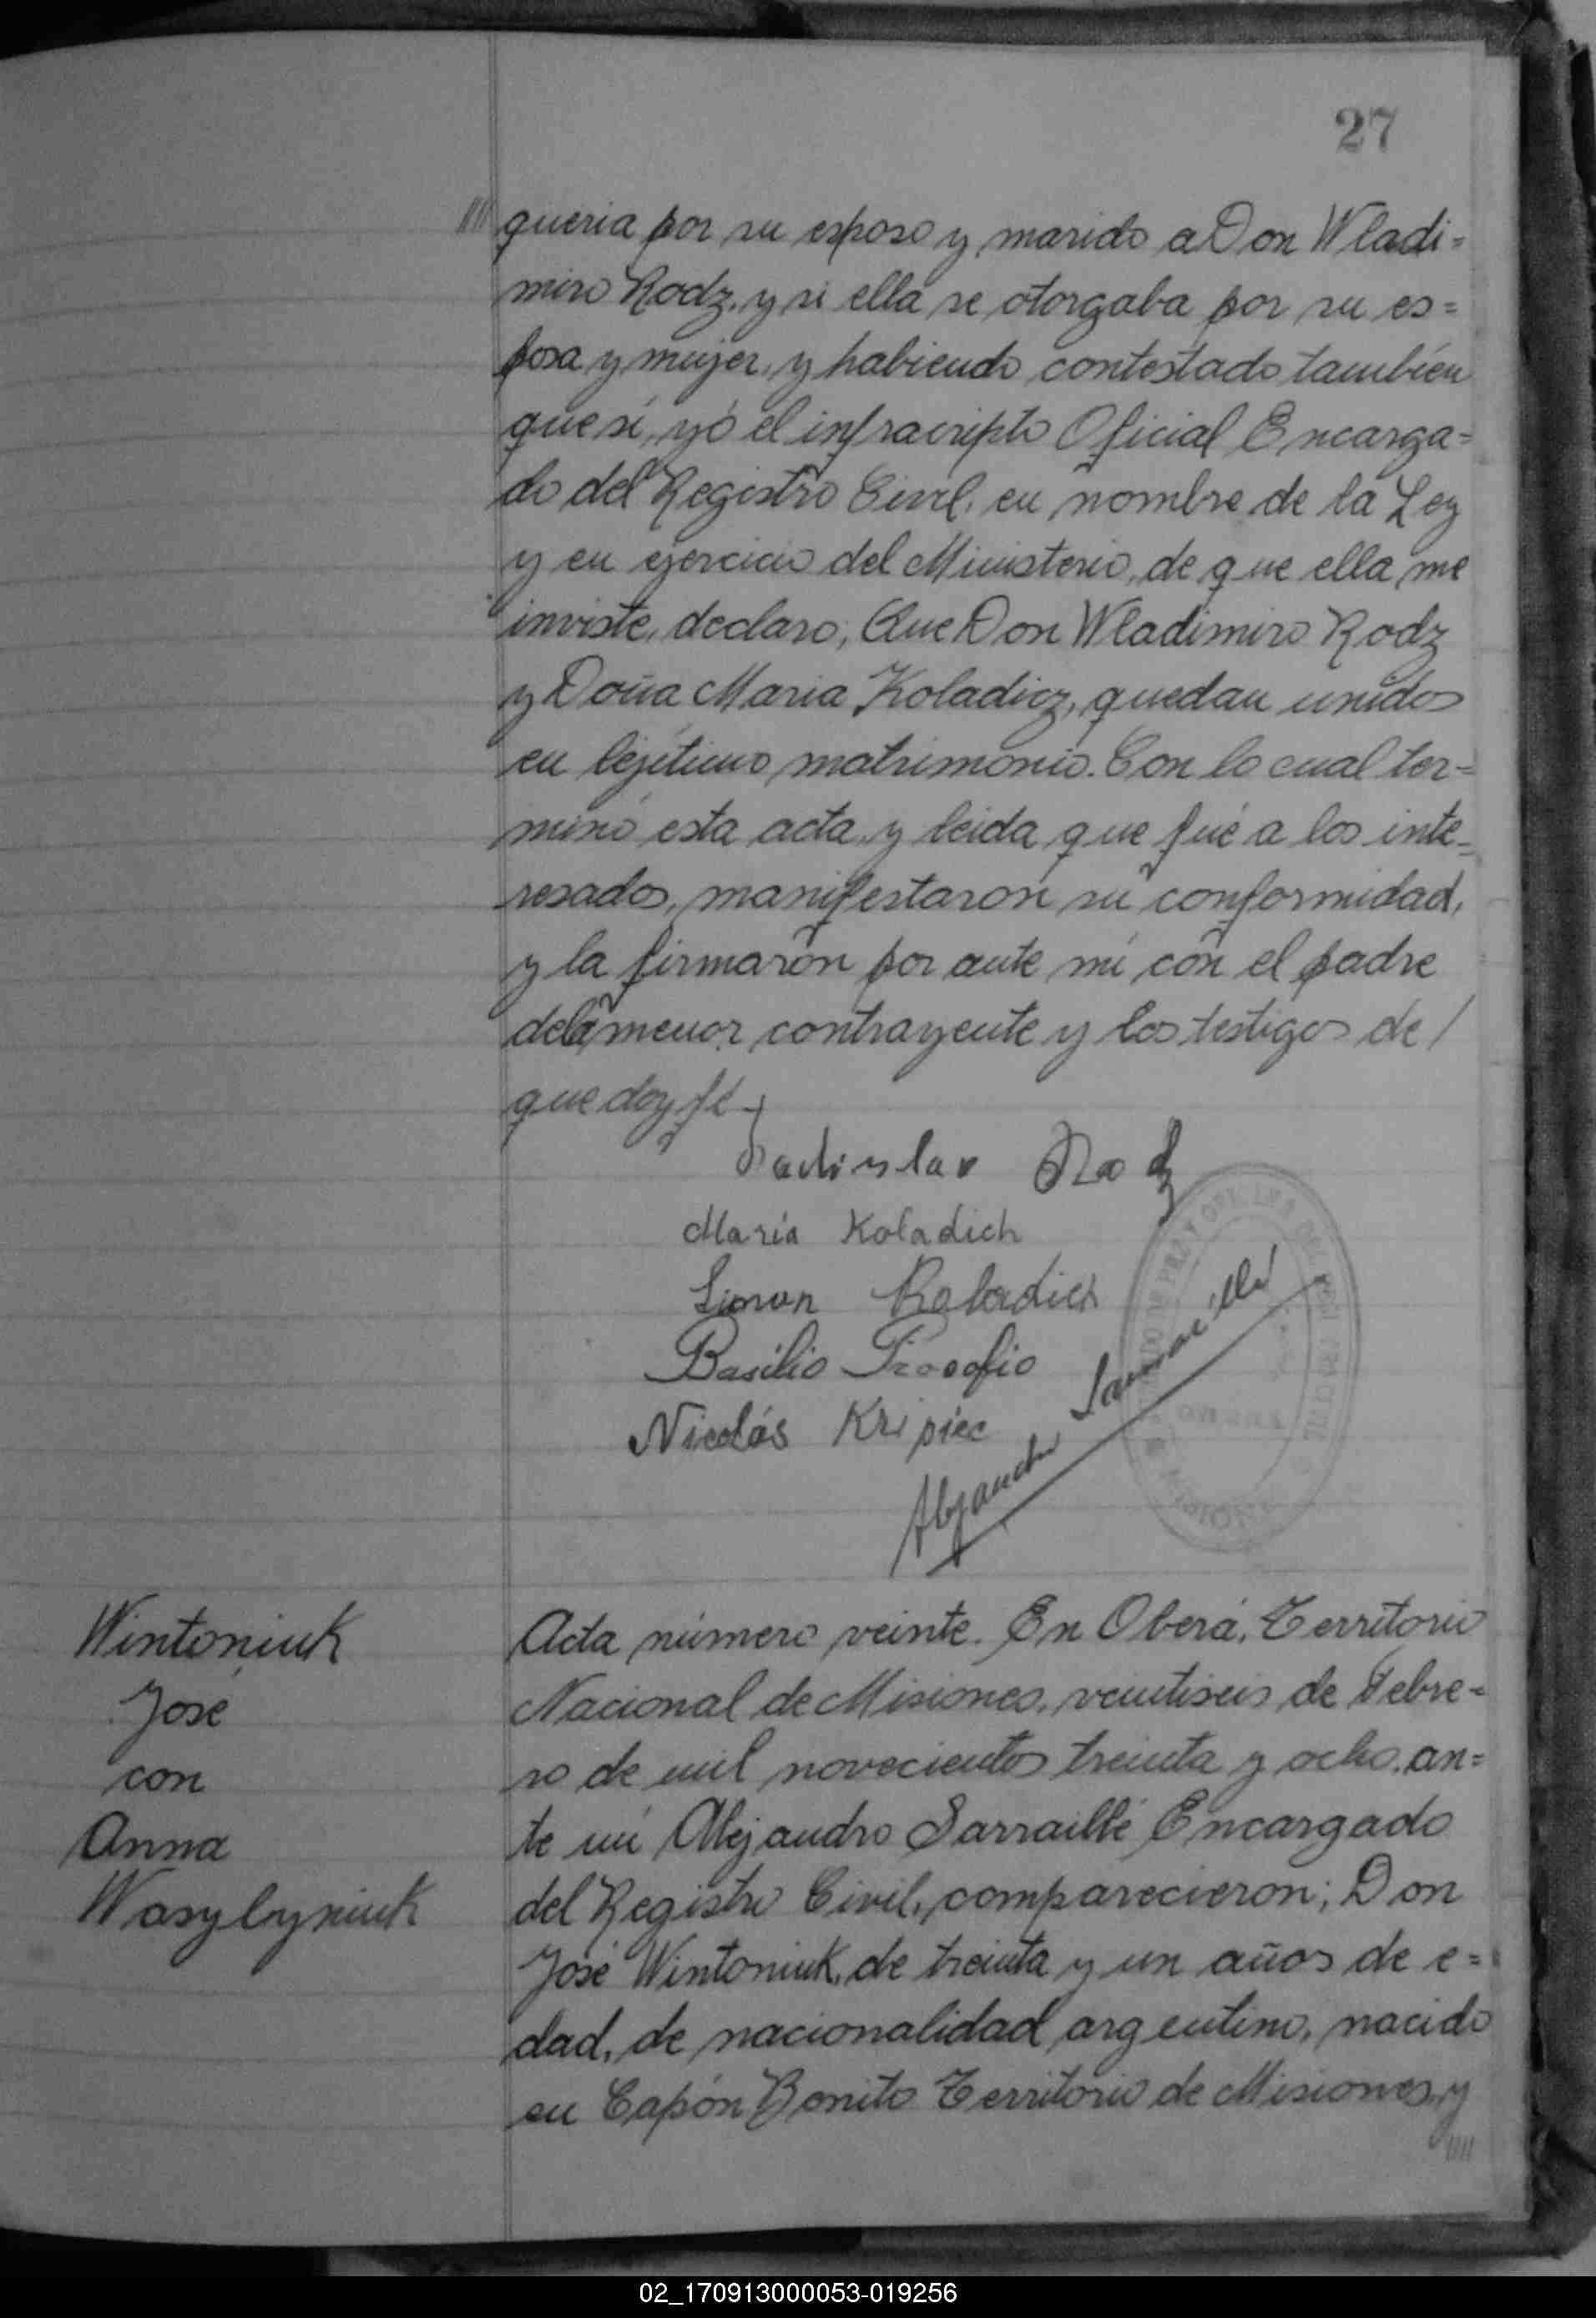 27
//// queria por su esposo y marido a Don Wladi=
miro Rodz, y si ella se otorgaba por su es=
posa y mujer, y habiendo contestado también
que si, yó el infrascripto Oficial Encarga=
do del Registro Civil, en nombre de la Ley
y en ejercicio del Ministerio, de que ella me
inviste, declaro; Que Don Wladimiro Rodz
y Doña Maria Koladicz, quedan unidos
en lejítimo matrimonio. Con lo cual ter=
minó esta acta, y leida que fué a los inte=
resados, manifestaron su conformidad,
y la firmaron por ante mi con el padre
de la menor contrayente y los testigos de /
que doy fé
Rod
Maria Koladich
Simon Koladich
Basilio
Nicolás Kripiec
Alejandro Sarraillé
MISIONES
Wintoniuk
José
con
Anna
Wasylyniuk
Acta número veinte. En Oberá, Territorio
Nacional de Misiones, veintiseis de Febre=
ro de mil novecientos treinta y ocho, an=
te mi Alejandro Sarraillé Encargado
del Registro Civil, comparecieron; Don
José Wintoniuk, de treinta y un años de e=
dad, de nacionalidad argentino, nacido
en Capón Bonito Territorio de Misiones, y
////
02_170913000053-019256